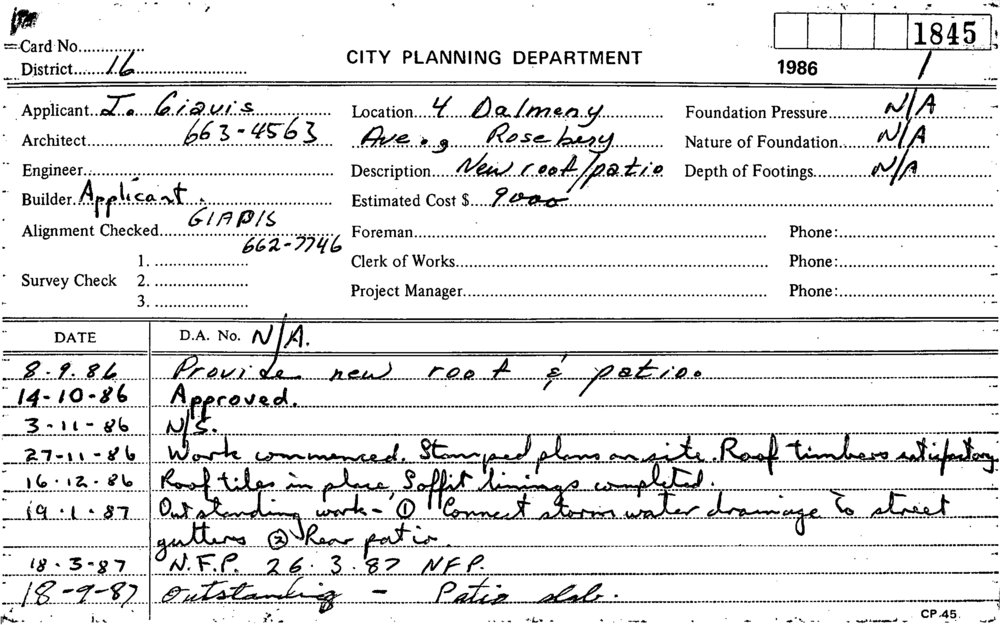 Card No.
1845
District 16
CITY PLANNING DEPARTMENT
1986
Applicant J. Giavis
Location 4 Dalmeny
Foundation Pressure N/A
Architect 663-4563
Ave., Rosebery
Nature of Foundation N/A
Engineer
Description New roof/patio
Depth of Footings N/A
Builder Applicant.
Estimated Cost $ 9000
Alignment Checked GIABIS
662-7746
Foreman
Phone:
Survey Check
1.
2.
3.
Clerk of Works
Phone:
Project Manager
Phone:
DATE
D.A. No. N/A.
8.9.86 Provide new roof & patio.
14-10-86 Approved.
3-11-86 N/S.
27-11-86 Work commenced. Stamped plans on site. Roof timbers satisfactory.
16.12.86 Roof tiles in place, Soffit linings completed.
19.1.87 Outstanding work - ① Connect storm water drainage to street
gutters ② Rear patio.
18.3-87 N.F.P. 26.3.87 NFP.
18-9-87 Outstanding - Patio slab.
CP.45.